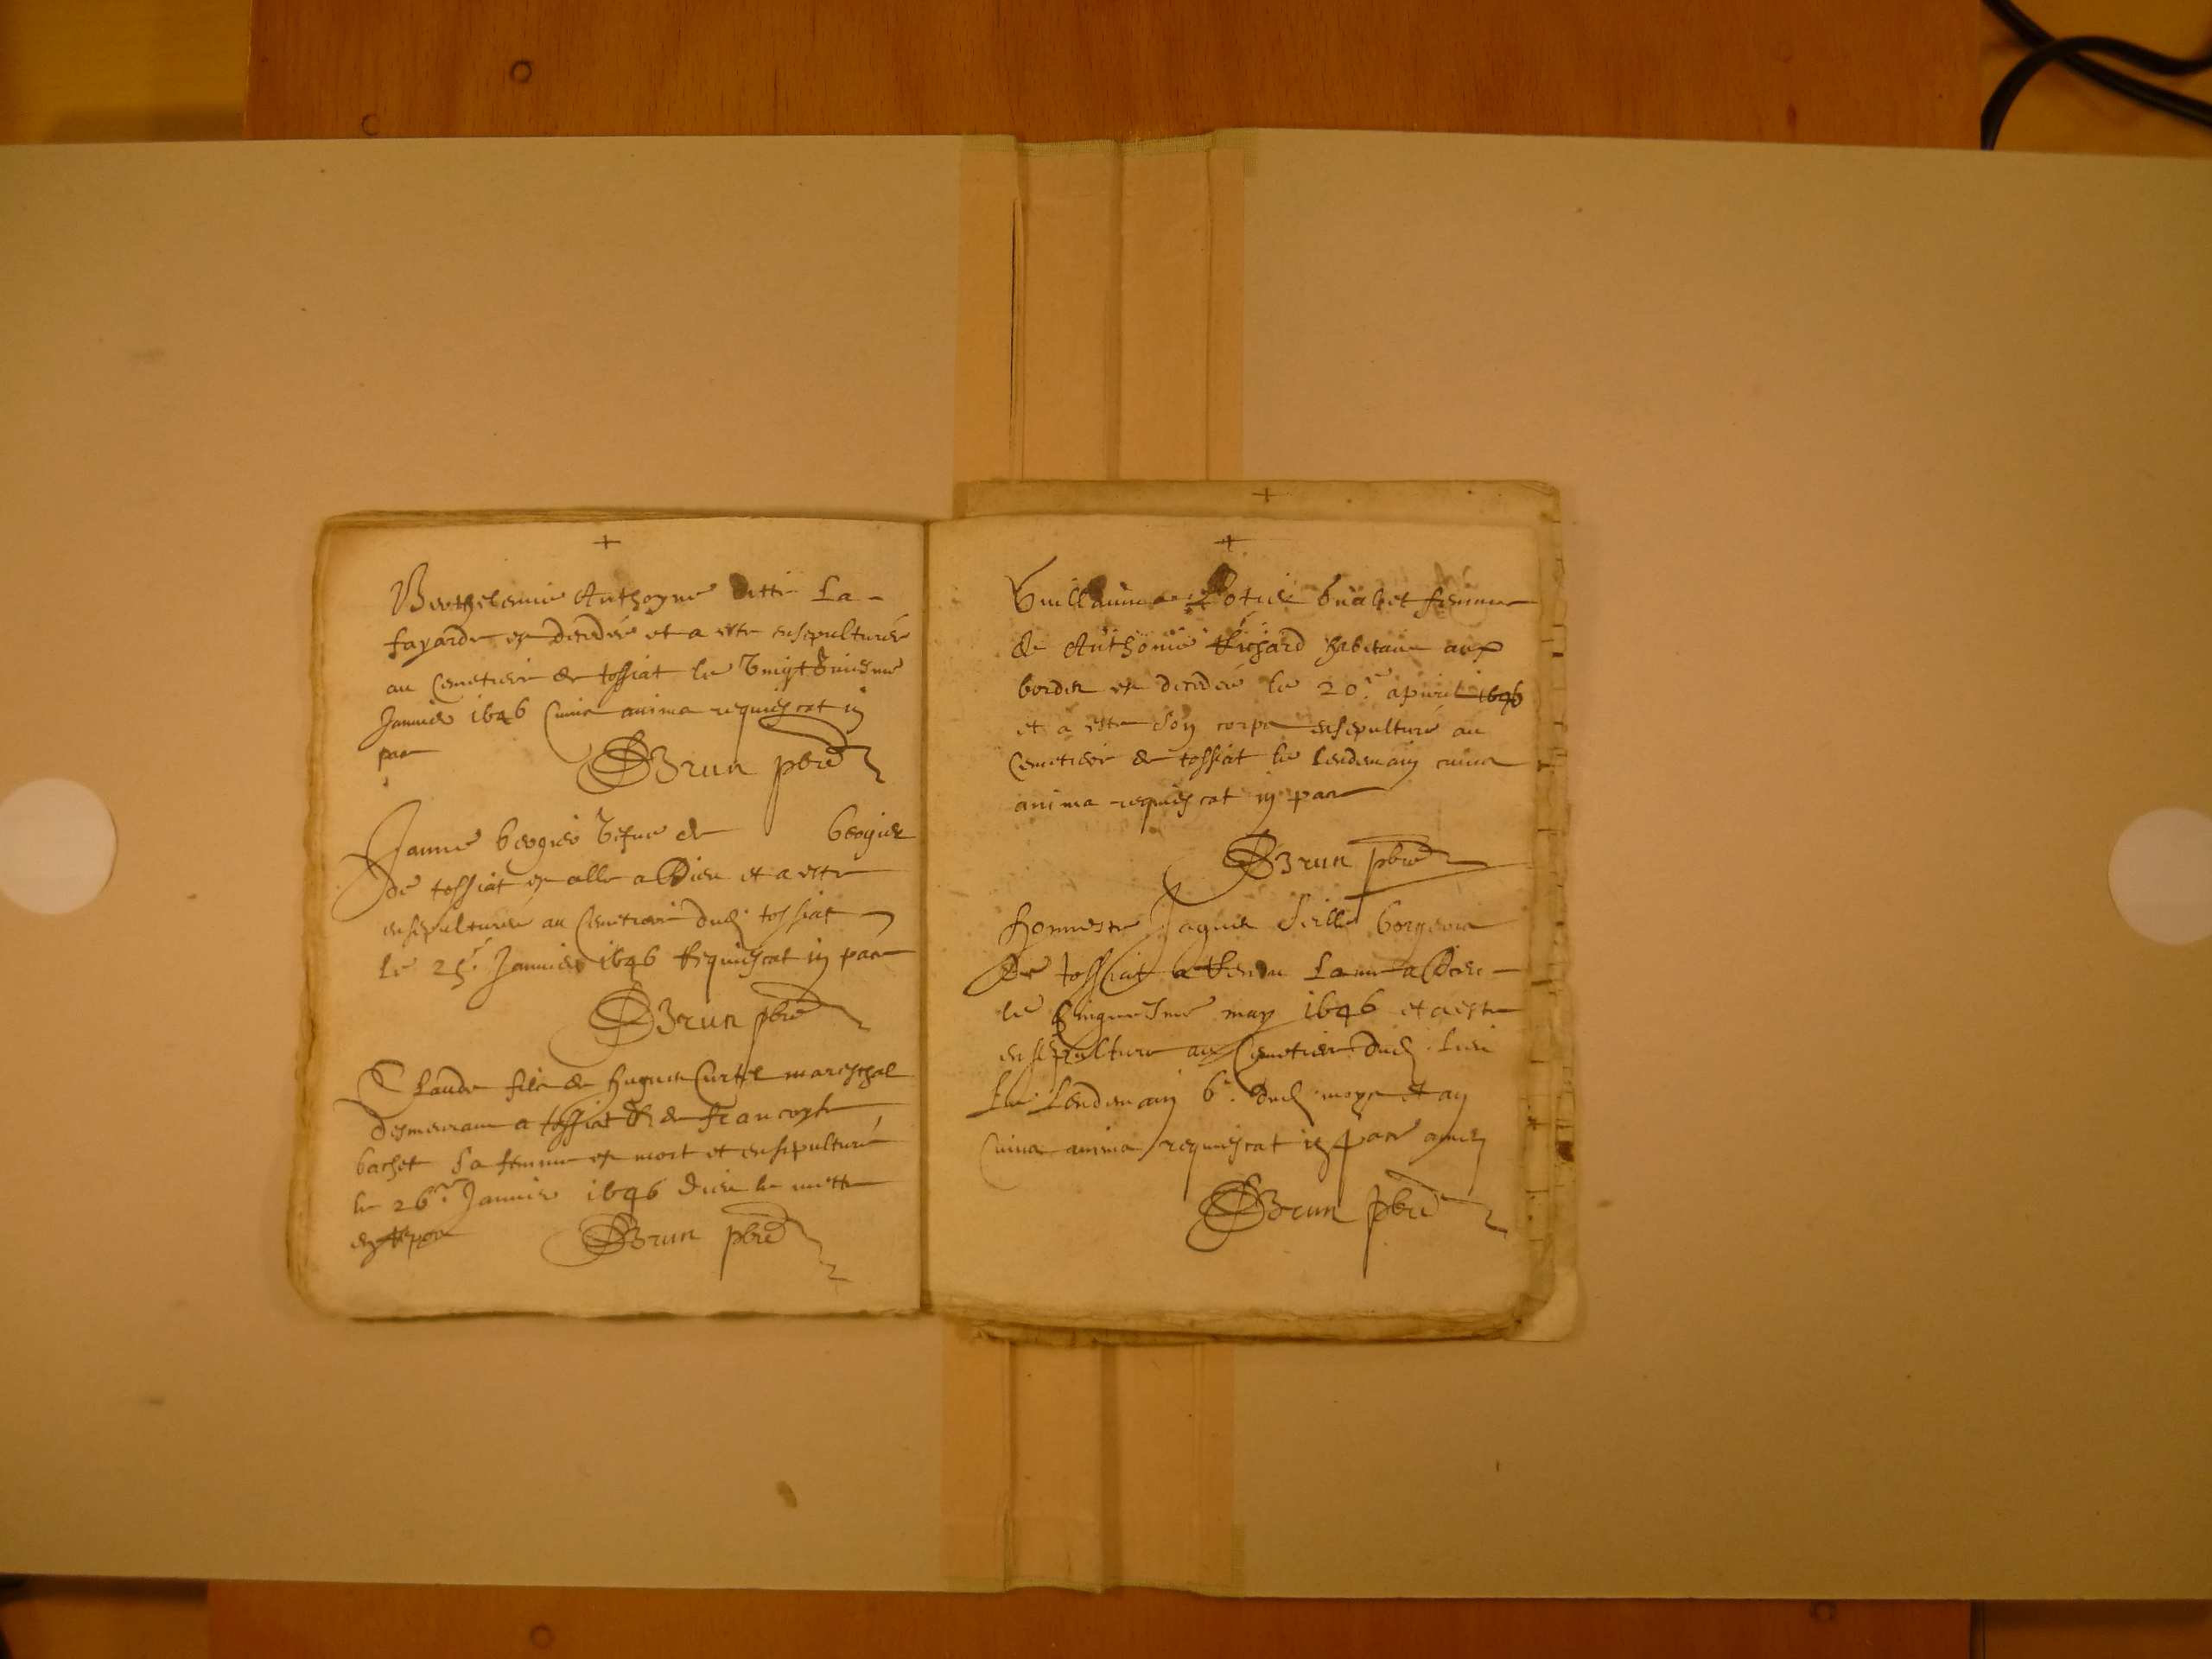 +
Berthelemie Anthoyne ditte La-
fayarde est decedée et a este ensepulturée
au Cemetiere de tossiat le Vingt
Januier 1646 Cuius anima requiescat in
pace
Brun pbre
Janne bergier Vefue de bergier
de tossiat est alle a Dieu et a este
ensepulturée au Cemetiere dud. tossiat
le 25e Januier 1646 Requiescat in pace
Brun pbre
Claude fils de hugues Curtel mareschal
demeurant a tossiat et de francoyse
bachet sa femme est mort et ensepulturé
le 26e Januier 1646 Dieu le mette
en repos
Brun pbre
+
Guillauma buabet femme
de Anthoine Richard habitant aux
bordes est decedée le 20e apuril 1646
et a este son corps ensepulturé au
Cemetiere de tossiat le Lendemain cuius
anima requiescat in pace
Brun pbre
honneste Jaques borgeois
de tossiat a Rendu Lame a Dieu
le Cinquiesme may 1646 et a este
ensepulture au Cemetiere dud. Lieu
Le Lendemain 6e dud. moys et an
Cuius anima requiescat in pace amen
Brun pbre